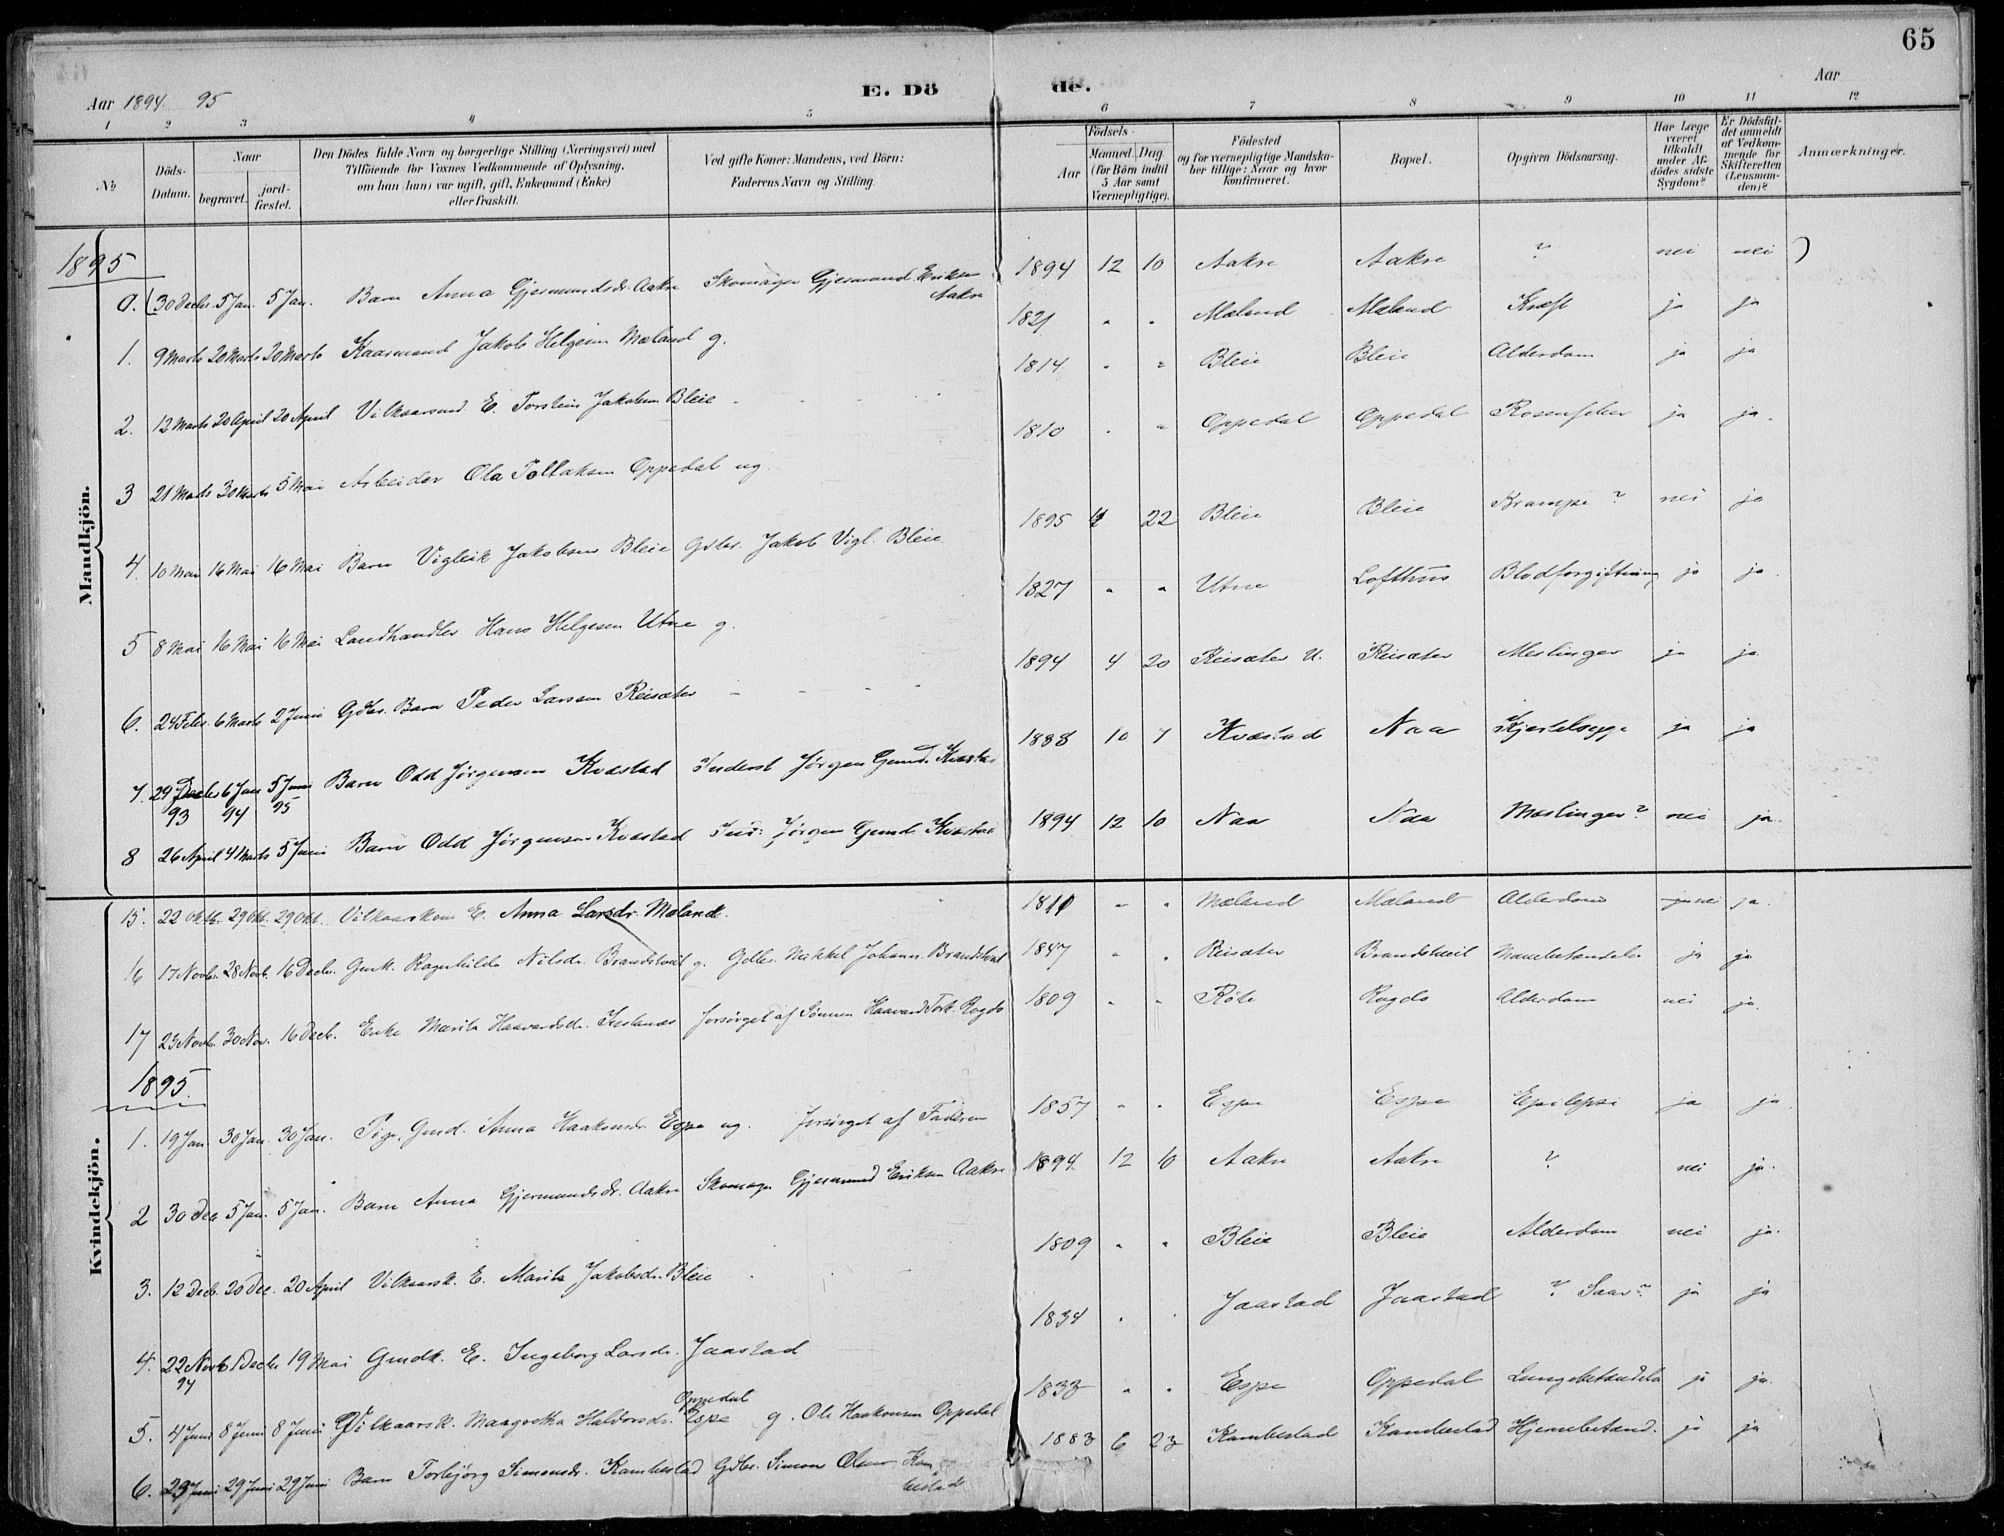 65
Aar 1894. 95
E. Dö de.
Aar
1 2 3 4 5 6 7 8 9 10 11 12
№
Döds-Datum.
Naar
begravet.
jord-fæstet.
Den Dödes fulde Navn og borgerlige Stilling (Næringsvei) med Tilföiende for Voxnes Vedkommende af Oplysning, om han (hun) var ugift, gift, Enkemand (Enke) eller fraskilt.
Ved gifte Koner: Mandens, ved Börn: Faderens Navn og Stilling.
Födsels-
Aar
Maaned. Dag.
(for Börn indtil 5 Aar samt Værnepligtige).
Födested og for værnepligtige Mandskaber tillige: Naar og hvor konfirmeret.
Bopæl.
Opgiven Dödsaarsag.
Har Læge været tilkaldt under Afdödes sidste Sygdom?
Er Dödsfaldet anmeldt af Vedkommende for Skifteretten (Lensmanden)?
Anmærkninger.
Mandkjön.
1895
0. (30 Decbr. 5 Jan. 5 Jan. Barn Anna Gjermundsdr. Aakre Skomager Gjermund Eriksen Aakre 1894 12 10 Aakre Aakre ? nei nei )
1. 9 Marts 20 Marts 20 Marts Kaarmand Jakob Helgesen Mæland g. 1821 " " Mæland Mæland Kræft ja ja
2. 12 Marts 20 April 20 April Vilkaarmd. E. Torstein Jakobsen Bleie 1814 " " Bleie Bleie Alderdom ja ja
3 21 Marts 30 Marts 5 Mai Arbeider Ola Tollaksen Oppedal ug. 1810 " " Oppedal Oppedal Rosenfeber ja ja.
4. 10 Mai 16 Mai 16 Mai Barn Vigleik Jakobsen Bleie Gdbr. Jakob Vigl. Bleie 1895 4 22 Bleie Bleie Krampe ? nei ja
5 8 Mai 16 Mai 16 Mai Landhandler Hans Helgesen Utne g. 1827 " " Utne Lofthus Blodforgiftning ja ja.
6. 24 Febr. 6 Marts 2 Juni Gdbr. Barn Peder Larsen Reisæter 1894 4 20 Reisæter U. Reisæter Meslinger ja ja
7. 29 Decbr 93 6 Jan 94 5 Juni 95 Barn Odd Jørgensen Kvæstad Inderst Jørgen Gmd. Kvæstad 1888 10 7 Kvæstad Naa Kjertelsyge ja ja
8 26 April 4 Marts 5 Juni Barn Odd Jørgensen Kvæstad Ind: Jørgen Gmd. Kvæstad 1894 12 10 Naa Naa Mæslinger? nei ja.
Kvindekjön.
15. 22 Oktb. 29 Okt. 29 Okt. Vilkaarskone E. Anna Larsdr. Mæland. 1811 " " Mæland Mæland Alderdom nei ja.
16 17 Novbr. 28 Novb. 16 Decbr. Gmk. Ragnhilda Nilsdr. Brandstveit g. Gdbr. Mikkel Johann. Brandstveit 1847 " " Reisæter Brandstveit ja ja
17 23 Novb. 30 Nov. 16 Decb. Enke Marita Haavardsdr. forsörget af Sönnen Haavard Tork. Rogde 1809 " " Røte Rogde Alderdom nei ja.
1895.
1. 19 Jan. 30 Jan. 30 Jan. Pige, Gmd. Anna Haakonsdr. Espe ug. forsörget af Faderen 1857 " " Espe Espe Epilepsi ja ja.
2 30 Dec 5 Jan. 5 Jan. Barn Anna Gjermundsdr. Aakre Skomager Gjermund Eriksen Aakre 1894. 12 10 Aakre Aakre ? nei ja.
3. 12 Decb. 20 Dec. 20 April Vilkaarsk. E. Marita Jakobsdr. Bleie 1809 " " Bleie Bleie Alderdom nei ja.
4. 22 Novb 94 1 Decbr 19 Mai Gmdk. E. Ingeborg Larsdr. Jaastad 1834 " " Jaastad Jaastad ? Saar? ja ja
5. 4 Juni 8 Juni 8 Juni Vilkaarsk. Maagretha Haldorsdr. Oppedal Espe g. Ole Haakonsen Oppedal 1833 " " Espe Oppedal Lungebetændelse ja ja.
6. 23 Juni 29 Juni 29 Juni Barn Torbjörg Simonsdr. Kambestad Gdbr. Simon Olsen Kambestad 1883 6 23 Kambestad Kambestad Hjernebetænd. ja ja